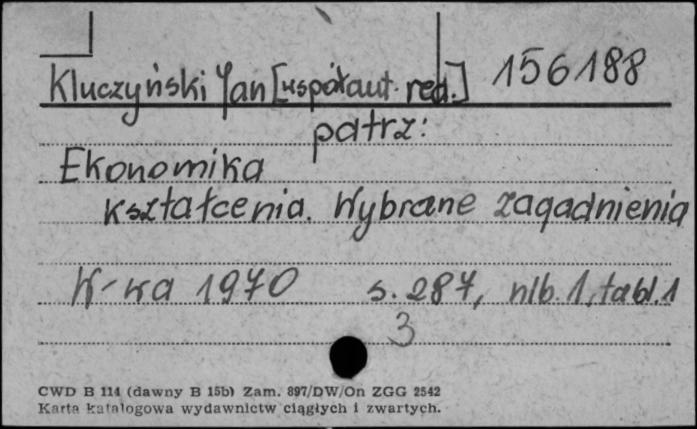 Kluczyński Jan [współaut. red.] 156188
patrz:
Ekonomika
kształcenia. Wybrane zagadnienia
W-wa 1970 s. 287, nlb. 1, tabl. 1
3
CWD B 114 (dawny B 15b) Zam. 897/DW/On ZGG 2542
Karta katalogowa wydawnictw ciągłych i zwartych.